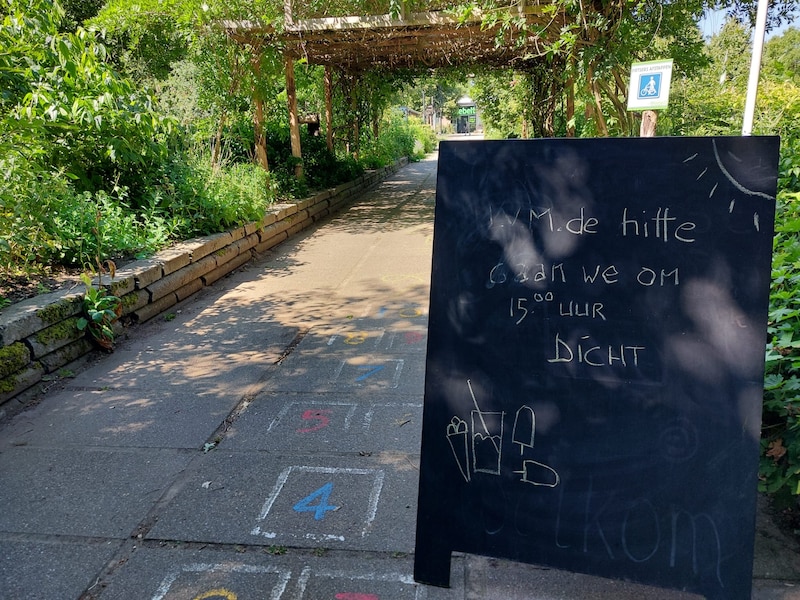 I.V.M. de hitte
Gaan we om
15⁰⁰ UUR
DICHT
5
4